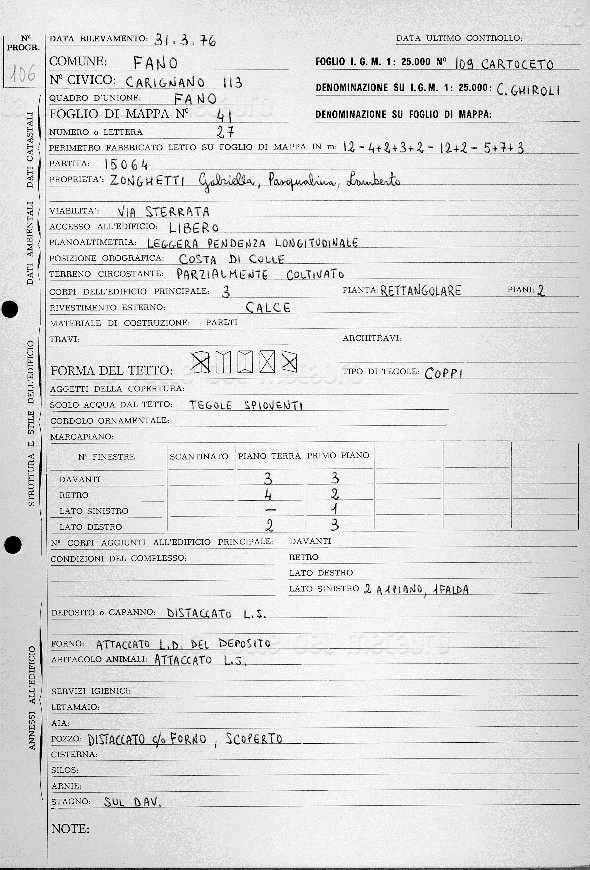 Nº PROGR.
106
DATA RILEVAMENTO: 31.3.76 DATA ULTIMO CONTROLLO:
COMUNE: FANO FOGLIO I.G.M. 1:25.000 Nº 109 CARTOCETO
Nº CIVICO: CARIGNANO 113 DENOMINAZIONE SU I.G.M. 1:25.000: C. GHIROLI
QUADRO D'UNIONE: FANO
FOGLIO DI MAPPA Nº 41 DENOMINAZIONE SU FOGLIO DI MAPPA:
NUMERO o LETTERA 27
PERIMETRO FABBRICATO LETTO SU FOGLIO DI MAPPA IN m: 12-4+2+3+2-12+2-5+7+3
PARTITA: 15064
PROPRIETA': ZONGHETTI Gabriella, Pasqualina, Lamberto
DATI CATASTALI
VIABILITA': VIA STERRATA
ACCESSO ALL'EDIFICIO: LIBERO
PLANOALTIMETRIA: LEGGERA PENDENZA LONGITUDINALE
POSIZIONE OROGRAFICA: COSTA DI COLLE
TERRENO CIRCOSTANTE: PARZIALMENTE COLTIVATO
DATI AMBIENTALI
CORPI DELL'EDIFICIO PRINCIPALE: 3 PIANTA: RETTANGOLARE PIANI: 2
RIVESTIMENTO ESTERNO: CALCE
MATERIALE DI COSTRUZIONE: PARETI
TRAVI: ARCHITRAVI:
FORMA DEL TETTO: TIPO DI TEGOLE: COPPI
AGGETTI DELLA COPERTURA:
SCOLO ACQUA DAL TETTO: TEGOLE SPIOVENTI
CORDOLO ORNAMENTALE:
MARCAPIANO:
Nº FINESTRE SCANTINATO PIANO TERRA PRIMO PIANO
DAVANTI 3 3
RETRO 4 2
LATO SINISTRO – 1
LATO DESTRO 2 3
STRUTTURA E STILE DELL'EDIFICIO
Nº CORPI AGGIUNTI ALL'EDIFICIO PRINCIPALE: DAVANTI
CONDIZIONI DEL COMPLESSO: RETRO
LATO DESTRO
LATO SINISTRO 2 A 1 PIANO, 1 FALDA
DEPOSITO o CAPANNO: DISTACCATO L.S.
FORNO: ATTACCATO L.D. DEL DEPOSITO
ABITACOLO ANIMALI: ATTACCATO L.S.
SERVIZI IGIENICI:
LETAMAIO:
AIA:
POZZO: DISTACCATO c/o FORNO, SCOPERTO
CISTERNA:
SILOS:
ARNIE:
STAGNO: SUL DAV.
ANNESSI ALL'EDIFICIO
NOTE: